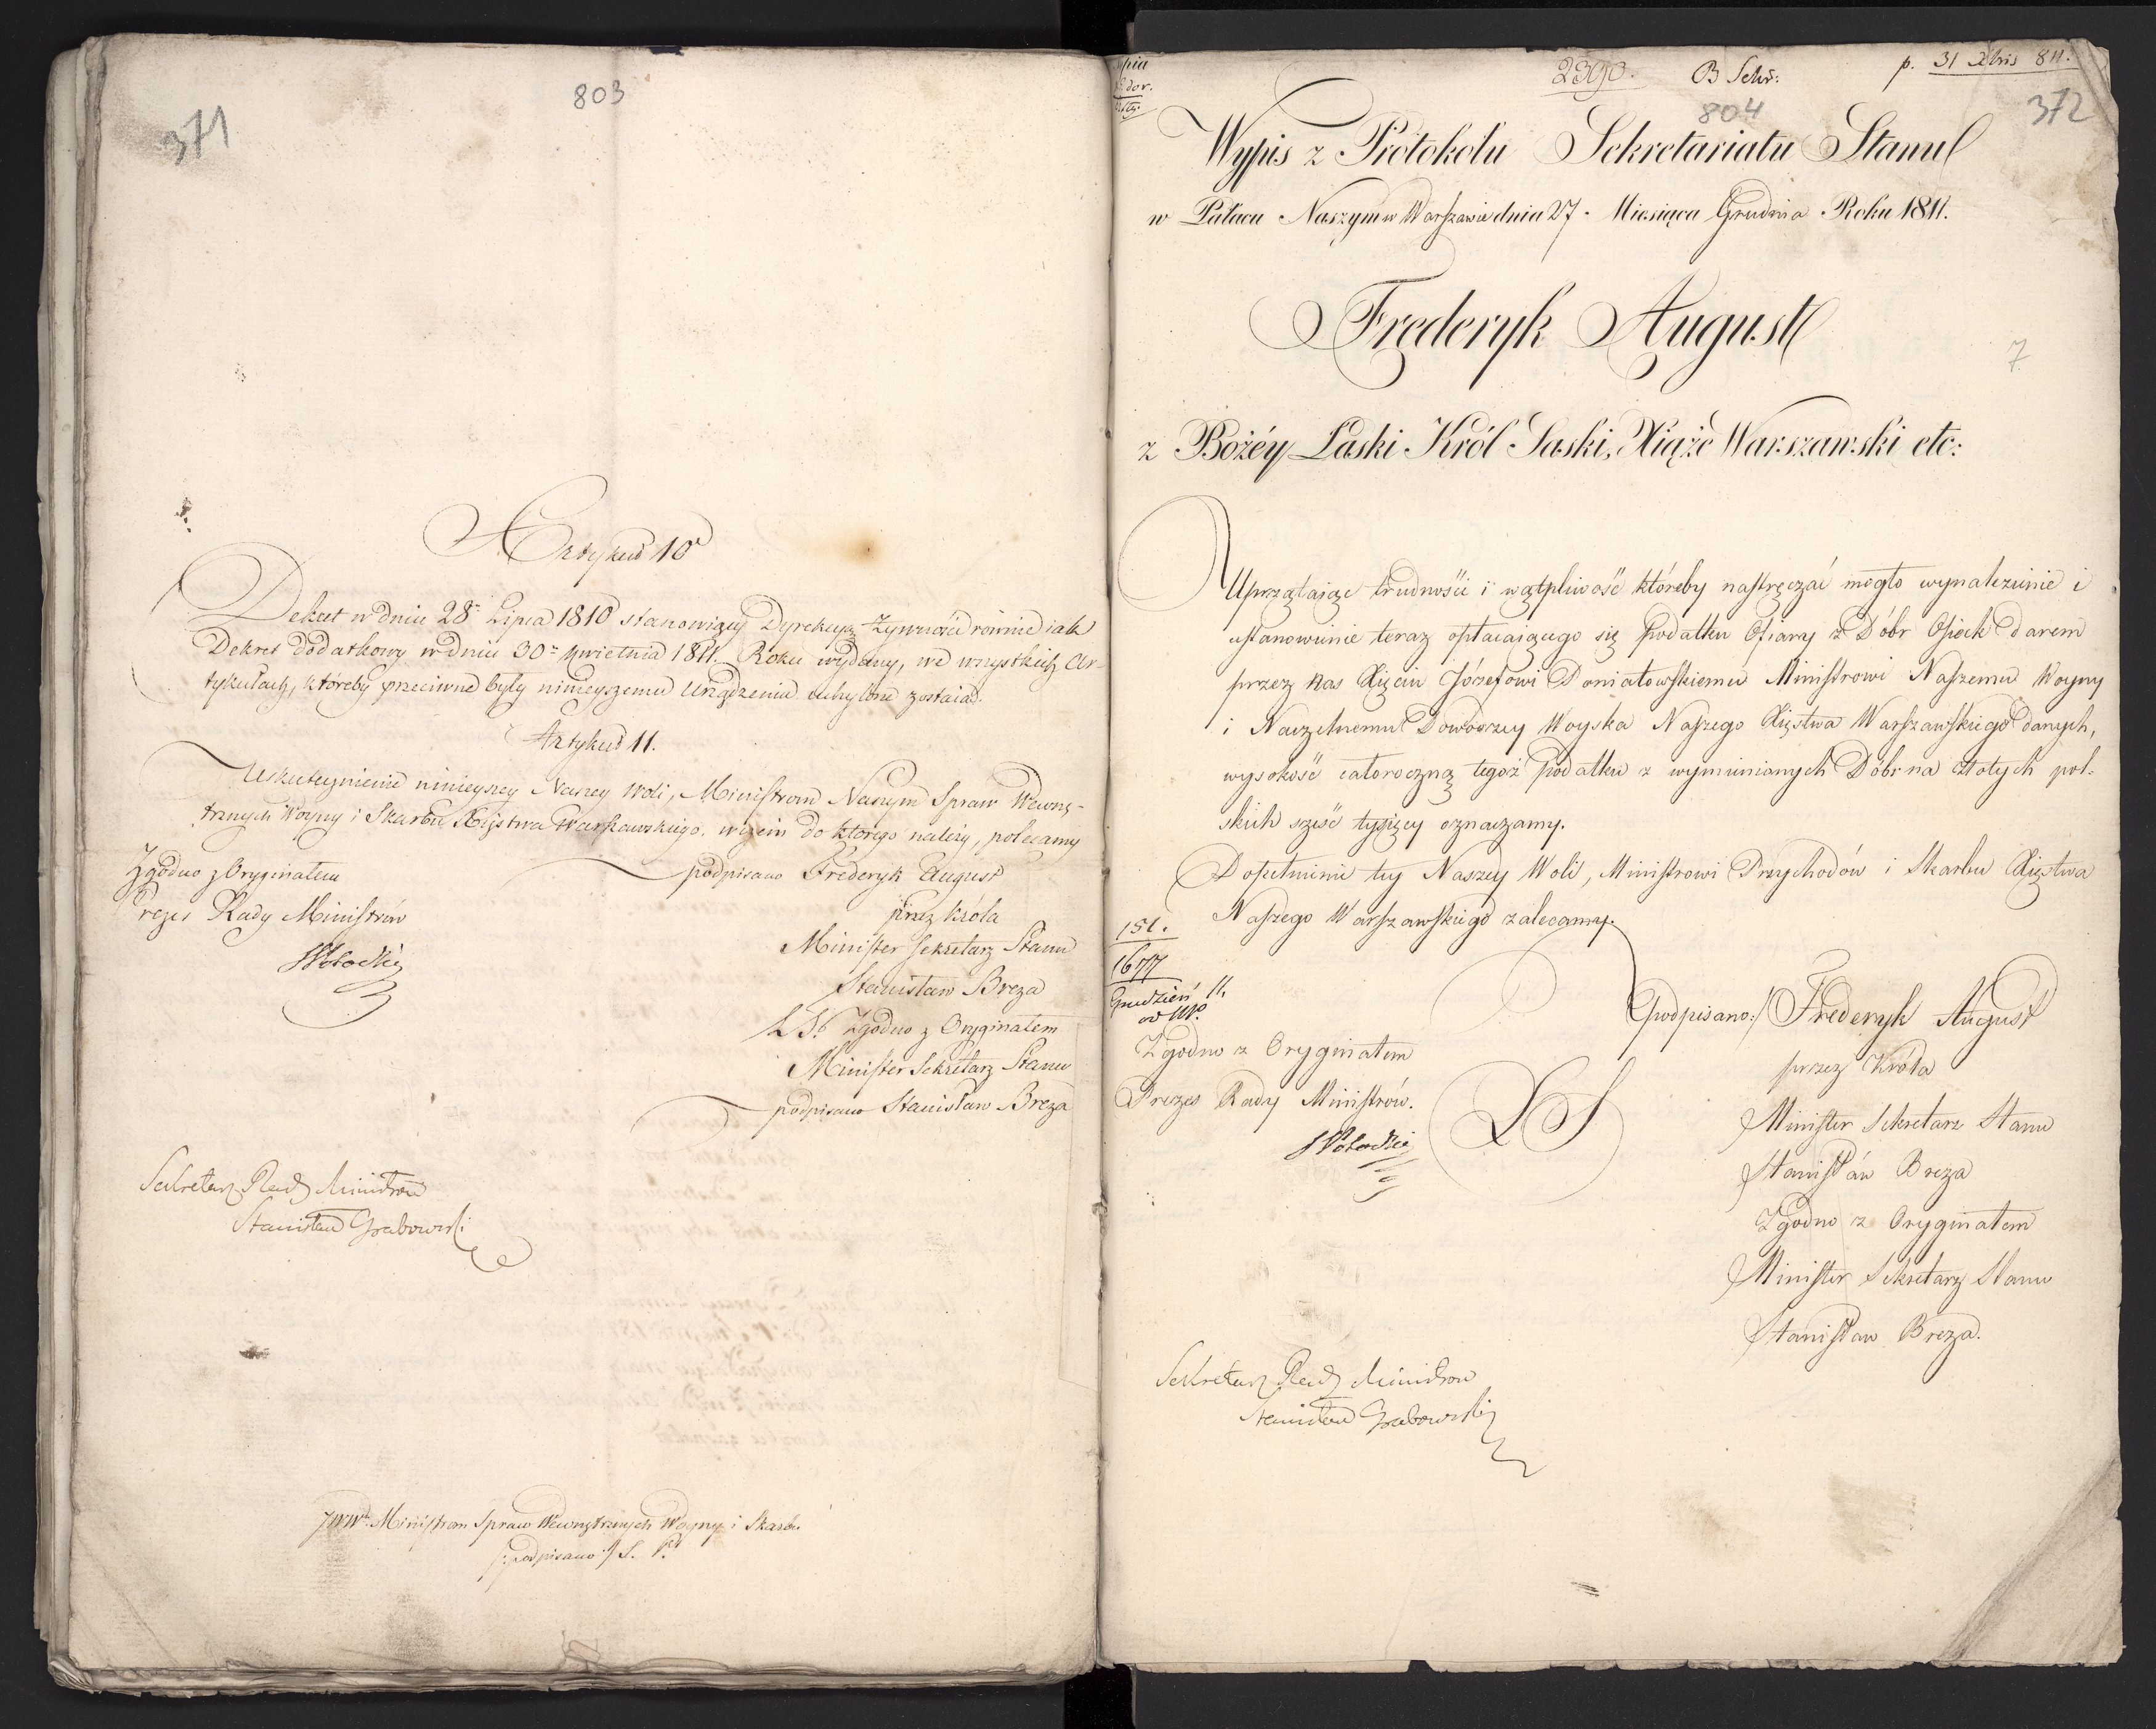 371
803
Artykuł 10
Dekret w dniu 28 Lipca 1810 stanowiący Dyrekcyą Żywności równie iak
Dekret dodatkowy w dniu 30 kwietnia 1811. Roku wydany, we wszystkich Ar-
tykułach, któreby przeciwne były ninieyszemu Urządzeniu uchylone zostaią.
Artykuł 11.
Uskutecznienie ninieyszey Naszey Woli, Ministrom Naszym Spraw Wewnę-
trznych Woyny i Skarbu Xięstwa Warszawskiego, w czém do którego należy, polecamy
Zgodno z Oryginałem
podpisano Frederyk August
Prezes Rady Ministrów
przez Króla
Minister Sekretarz Stanu
SPotocki
Stanisław Breza
L S. Zgodno z Oryginałem
Minister Sekretarz Stanu
podpisano Stanisław Breza
Sekretarz Rady Ministrow
Stanisław Grabowski
JWW. Ministrom Spraw Wewnętrznych Woyny i Skarbu
/:podpisano:/ S. P.
2390. B Sekr: p. 31 Xbris 811.
804
372
Wypis z Protokołu Sekretariatu Stanu
w Pałacu Naszym w Warszawie dnia 27. Miesiąca Grudnia Roku 1811.
Frederyk August
7
z Bożéy Łaski Król Saski, Xiąże Warszawski etc:
Uprzątaiąc trudności i wątpliwość któreby nastręczać mogło wynalezienie i
ustanowienie teraz opłacaiącego się Podatku Ofiary z Dóbr Osieck darem
przez Nas Xięciu Józefowi Poniatowskiemu Ministrowi Naszemu Woyny
i Naczelnemu Dowódzcy Woyska Naszego Xięstwa Warszawskiego danych,
wysokość całoroczną tegoż Podatku z wymienionych Dóbr na złotych pol-
skich sześć tysięcy oznaczamy.
Dopełnienie tey Naszey Woli, Ministrowi Przychodów i Skarbu Xięstwa
Naszego Warszawskiego zalecamy.
151.
1677
Grudzień 11.
/podpisano:/ Frederyk August
Zgodno z Oryginałem
przez Króla
Prezes Rady Ministrów.
L S
Minister Sekretarz Stanu
SPotocki
Stanisław Breza
Zgodno z Oryginałem
Minister Sekretarz Stanu
Stanisław Breza.
Sekretarz Rady Ministrow
Stanisław Grabowski